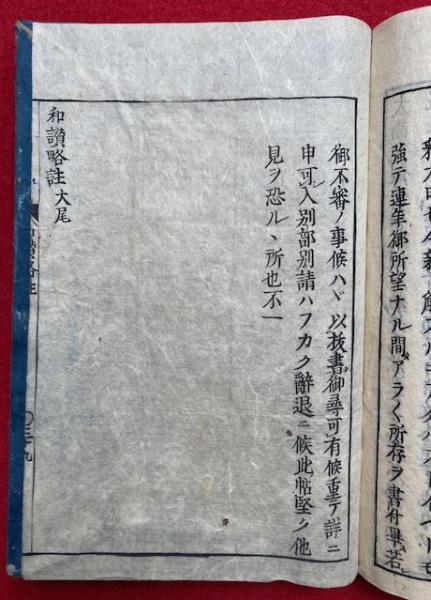 強テ連年御所望ナル間アラ〱所存ヲ書付畢若
御不審ノ事候ハヾ以抜書御尋可有候重テ詳ニ
申可入別部別請ハフカク辭退ニ候此帖堅ク他
見ヲ恐ルヽ所也不一
和讃略註大尾
〇三十九